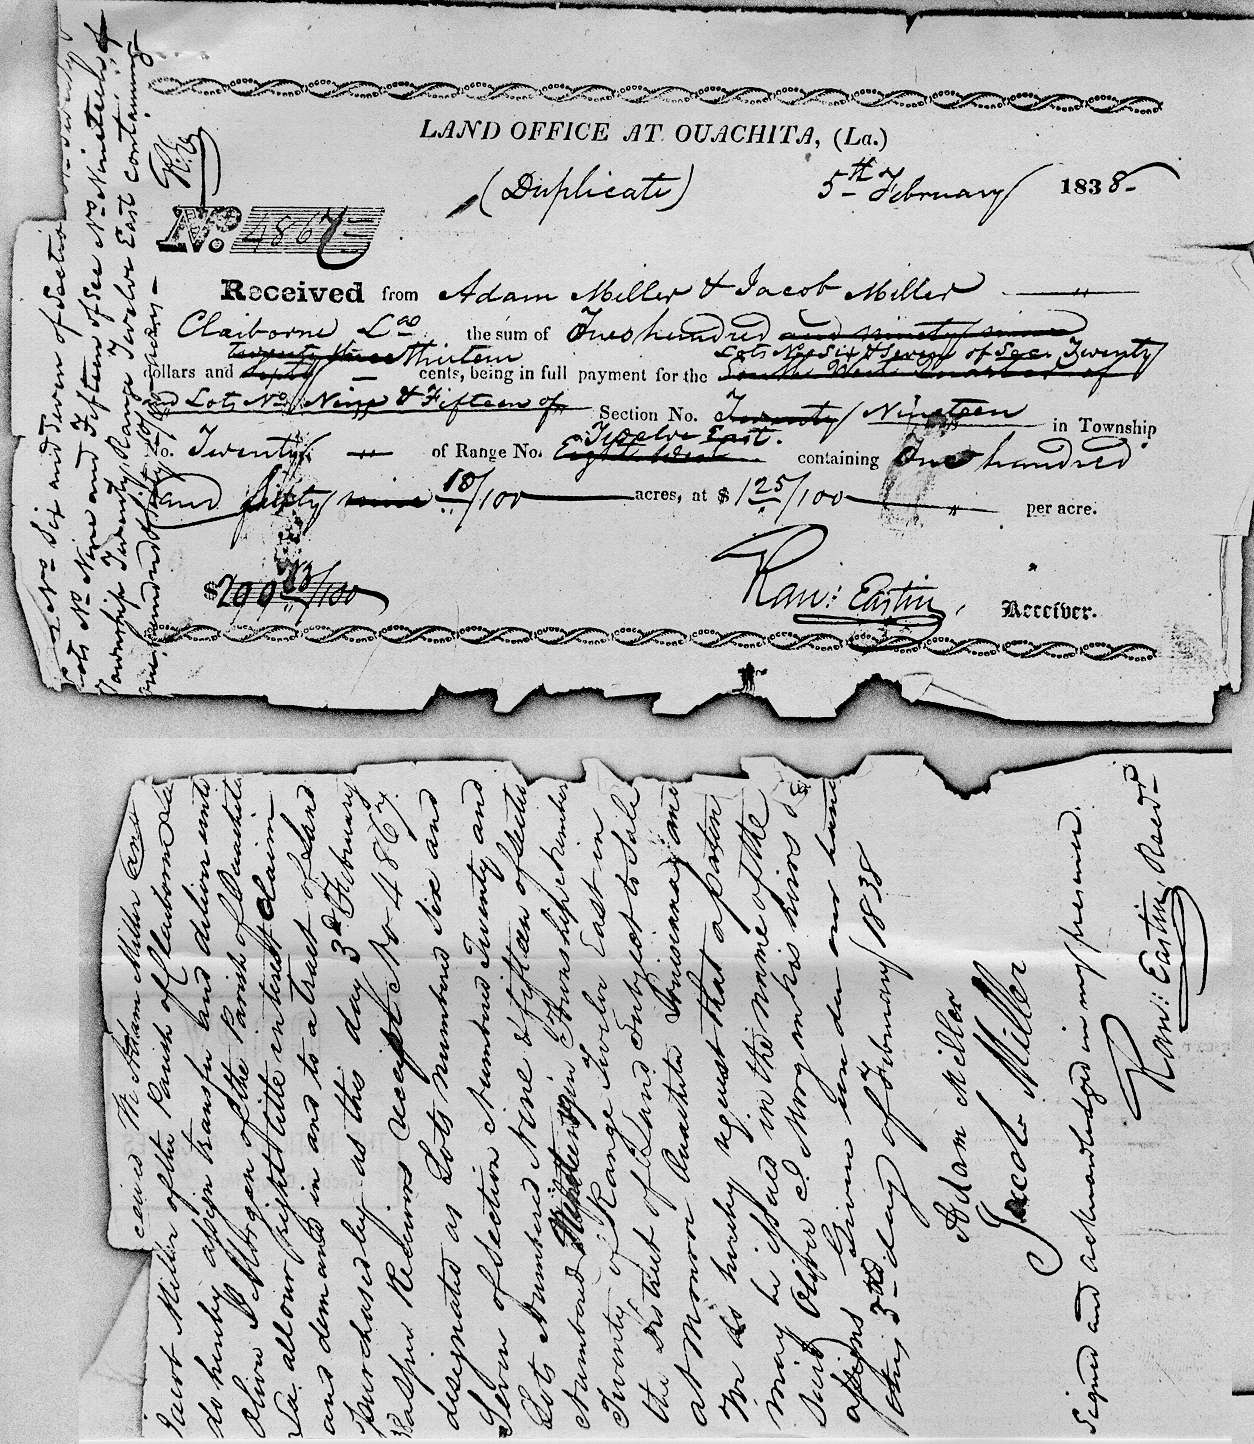 LAND OFFICE AT OUACHITA, (La.)
(Duplicate) 5th February 1838-
R.E.
No. 4867
Received from Adam Miller & Jacob Miller
Claiborne Laa the sum of Two hundred and ninety nine
twenty three Thirteen Lots Nos Six & Seven of Sec. Twenty
dollars and sixty cents, being in full payment for the South West Quarter of
and Lots Nos Nine & Fifteen of Section No. Twenty Nineteen in Township
Twelve East.
No. Twenty of Range No. Eight West containing One hundred
and sixty nine 10/100 acres, at $ 1 25/100 per acre.
$ 13/100
Ran: Eastin, Receiver.
Lots No Six and Seven of Section Twenty
Lots No Nine and Fifteen of Sec No Nineteen of
Township Twenty, Range Twelve East containing
One hundred & sixty 10/100 acres-
We Adam Miller and
Jacob Miller of the Parish of Claiborne La
do hereby assign transfer and deliver unto
Oliver J Morgan of the Parish of Ouachita
La. all our right title interest claim
and demand in and to a tract of Land
purchased by us this day 3d February
as per Receivers receipt No 4867.
designated as Lots numbered Six and
Seven of Section Numbered Twenty and
Lots Numbered Nine & fifteen of Section
Numbered Nineteen of Township number
Twenty of Range Twelve East in
the District of Land Subject to Sale
at Monroe Ouachita Louisiana, and
We do hereby request that a patent
may be issued in the name of the
said Oliver J Morgan his heirs or
assigns Given under our hand
this 3rd day of February 1838
Adam Miller
Jacob Miller
Signed and acknowledged in my presence.
Ran: Eastin, Recvr-